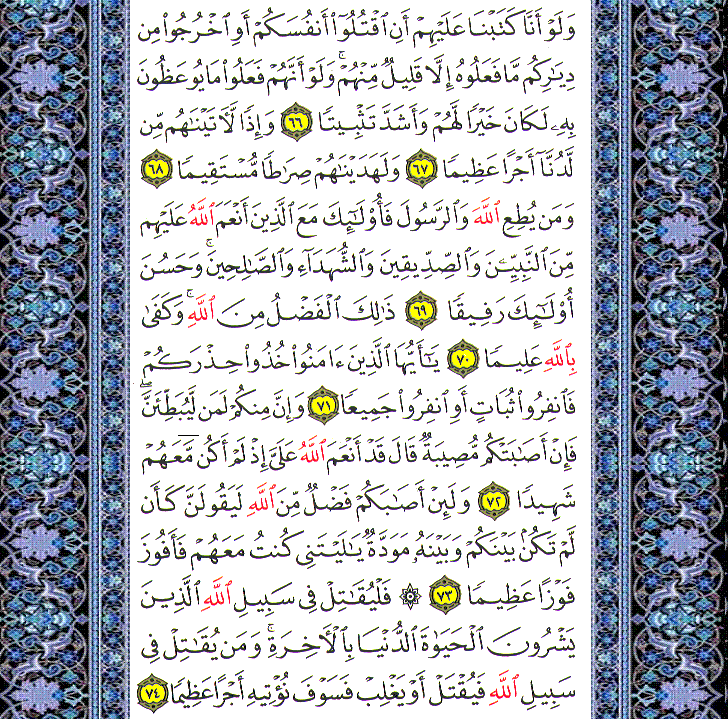 وَلَوْ أَنَّا كَتَبْنَا عَلَيْهِمْ أَنِ ٱقْتُلُوٓا۟ أَنفُسَكُمْ أَوِ ٱخْرُجُوا۟ مِن
دِيَٰرِكُم مَّا فَعَلُوهُ إِلَّا قَلِيلٌ مِّنْهُمْ ۖ وَلَوْ أَنَّهُمْ فَعَلُوا۟ مَا يُوعَظُونَ
بِهِۦ لَكَانَ خَيْرًا لَّهُمْ وَأَشَدَّ تَثْبِيتًا ٦٦ وَإِذًا لَّءَاتَيْنَٰهُم مِّن
لَّدُنَّآ أَجْرًا عَظِيمًا ٦٧ وَلَهَدَيْنَٰهُمْ صِرَٰطًا مُّسْتَقِيمًا ٦٨
وَمَن يُطِعِ ٱللَّهَ وَٱلرَّسُولَ فَأُو۟لَٰٓئِكَ مَعَ ٱلَّذِينَ أَنْعَمَ ٱللَّهُ عَلَيْهِم
مِّنَ ٱلنَّبِيِّۦنَ وَٱلصِّدِّيقِينَ وَٱلشُّهَدَآءِ وَٱلصَّٰلِحِينَ ۚ وَحَسُنَ
أُو۟لَٰٓئِكَ رَفِيقًا ٦٩ ذَٰلِكَ ٱلْفَضْلُ مِنَ ٱللَّهِ ۚ وَكَفَىٰ
بِٱللَّهِ عَلِيمًا ٧٠ يَٰٓأَيُّهَا ٱلَّذِينَ ءَامَنُوا۟ خُذُوا۟ حِذْرَكُمْ
فَٱنفِرُوا۟ ثُبَاتٍ أَوِ ٱنفِرُوا۟ جَمِيعًا ٧١ وَإِنَّ مِنكُمْ لَمَن لَّيُبَطِّئَنَّ ۖ
فَإِنْ أَصَٰبَتْكُم مُّصِيبَةٌ قَالَ قَدْ أَنْعَمَ ٱللَّهُ عَلَىَّ إِذْ لَمْ أَكُن مَّعَهُمْ
شَهِيدًا ٧٢ وَلَئِنْ أَصَٰبَكُمْ فَضْلٌ مِّنَ ٱللَّهِ لَيَقُولَنَّ كَأَن
لَّمْ تَكُنۢ بَيْنَكُمْ وَبَيْنَهُۥ مَوَدَّةٌ يَٰلَيْتَنِى كُنتُ مَعَهُمْ فَأَفُوزَ
فَوْزًا عَظِيمًا ٧٣ ۞ فَلْيُقَٰتِلْ فِى سَبِيلِ ٱللَّهِ ٱلَّذِينَ
يَشْرُونَ ٱلْحَيَوٰةَ ٱلدُّنْيَا بِٱلْءَاخِرَةِ ۚ وَمَن يُقَٰتِلْ فِى
سَبِيلِ ٱللَّهِ فَيُقْتَلْ أَوْ يَغْلِبْ فَسَوْفَ نُؤْتِيهِ أَجْرًا عَظِيمًا ٧٤